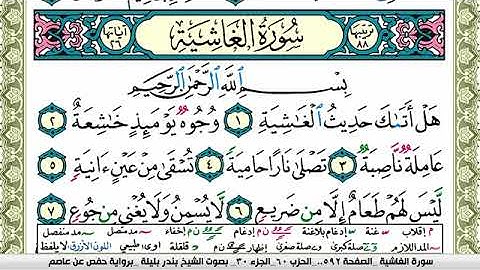 ترتيبها ٨٨ سُورَةُ الغَاشِيَةِ آياتها ٢٦
بِسْمِ اللَّهِ الرَّحْمَٰنِ الرَّحِيمِ
هَلْ أَتَىٰكَ حَدِيثُ ٱلْغَٰشِيَةِ ١ وُجُوهٌ يَوْمَئِذٍ خَٰشِعَةٌ ٢
عَامِلَةٌ نَّاصِبَةٌ ٣ تَصْلَىٰ نَارًا حَامِيَةً ٤ تُسْقَىٰ مِنْ عَيْنٍ ءَانِيَةٍ ٥
لَّيْسَ لَهُمْ طَعَامٌ إِلَّا مِن ضَرِيعٍ ٦ لَّا يُسْمِنُ وَلَا يُغْنِي مِن جُوعٍ ٧
م إقلاب غنّة ن م إدغام ن م إخفاء مد متصل مد منفصل
المد اللازم صلة كبرى صلة صغرى إظهار ن م قلقلة اوى طبيعي اللون الأزرق لا يلفظ
سورة الغاشية _الصفحة ٥٩٢.. _الحزب ٦٠_ الجزء ٣٠_ بصوت الشيخ بندر بليلة _برواية حفص عن عاصم